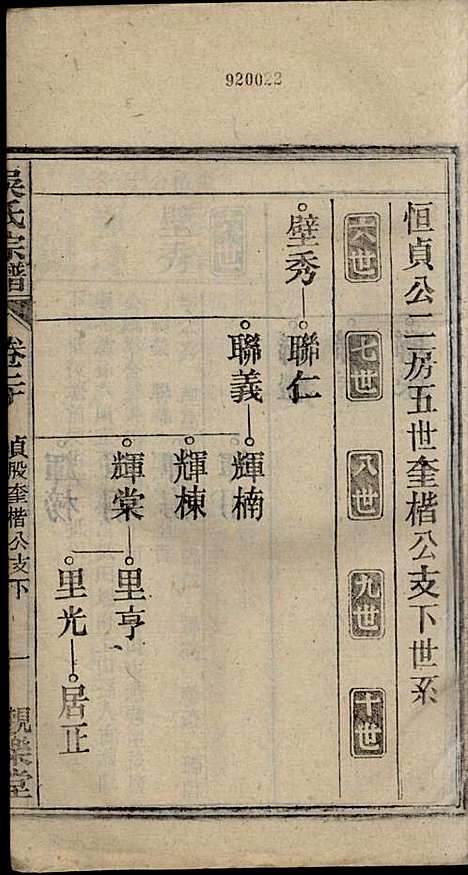 920022
恒貞公二房五世奎楷公支下世系
六世
七世
八世
九世
十世
壁秀
聯仁
聯義
輝楠
輝棟
輝棠
里亨
里光
居正
吳氏宗譜
貞股奎楷公支下
一
觀樂堂